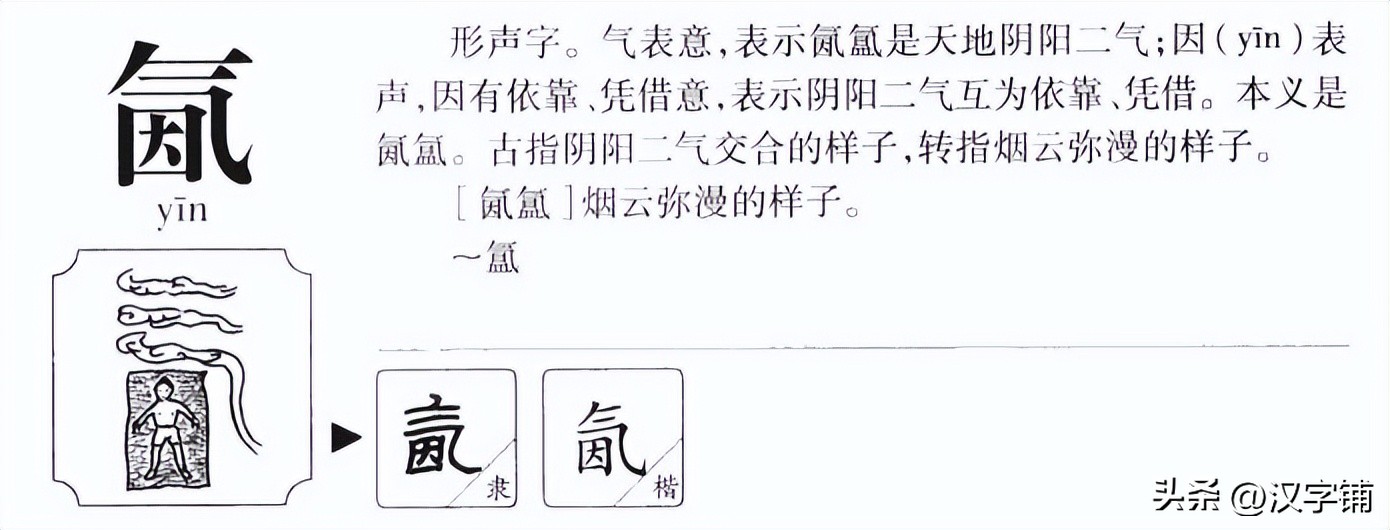 氤
yīn
形声字。气表意,表示氤氲是天地阴阳二气;因(yīn)表
声,因有依靠、凭借意,表示阴阳二气互为依靠、凭借。本义是
氤氲。古指阴阳二气交合的样子,转指烟云弥漫的样子。
[氤氲]烟云弥漫的样子。
～氲
氤
隶
氤
楷
头条 @汉字铺